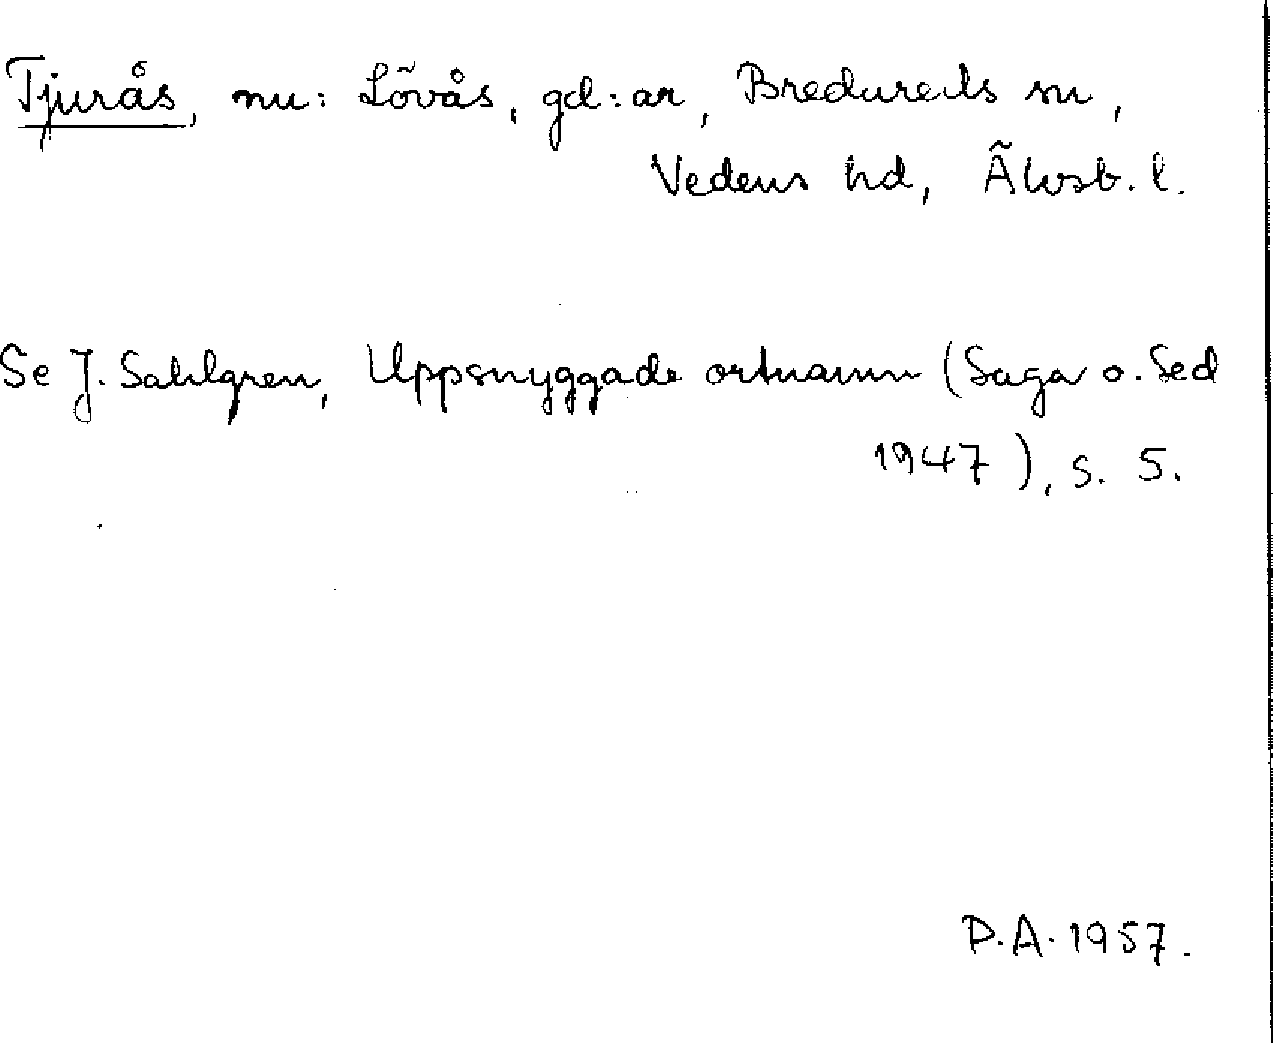 Tjurås, nu: Lövås, gd:ar, Bredareds sn,
Vedens hd, Älvsb. l.
Se J. Sahlgren, Uppsnyggade ortnamn (Saga o. Sed
1947), s. 5.
D.A. 1957.